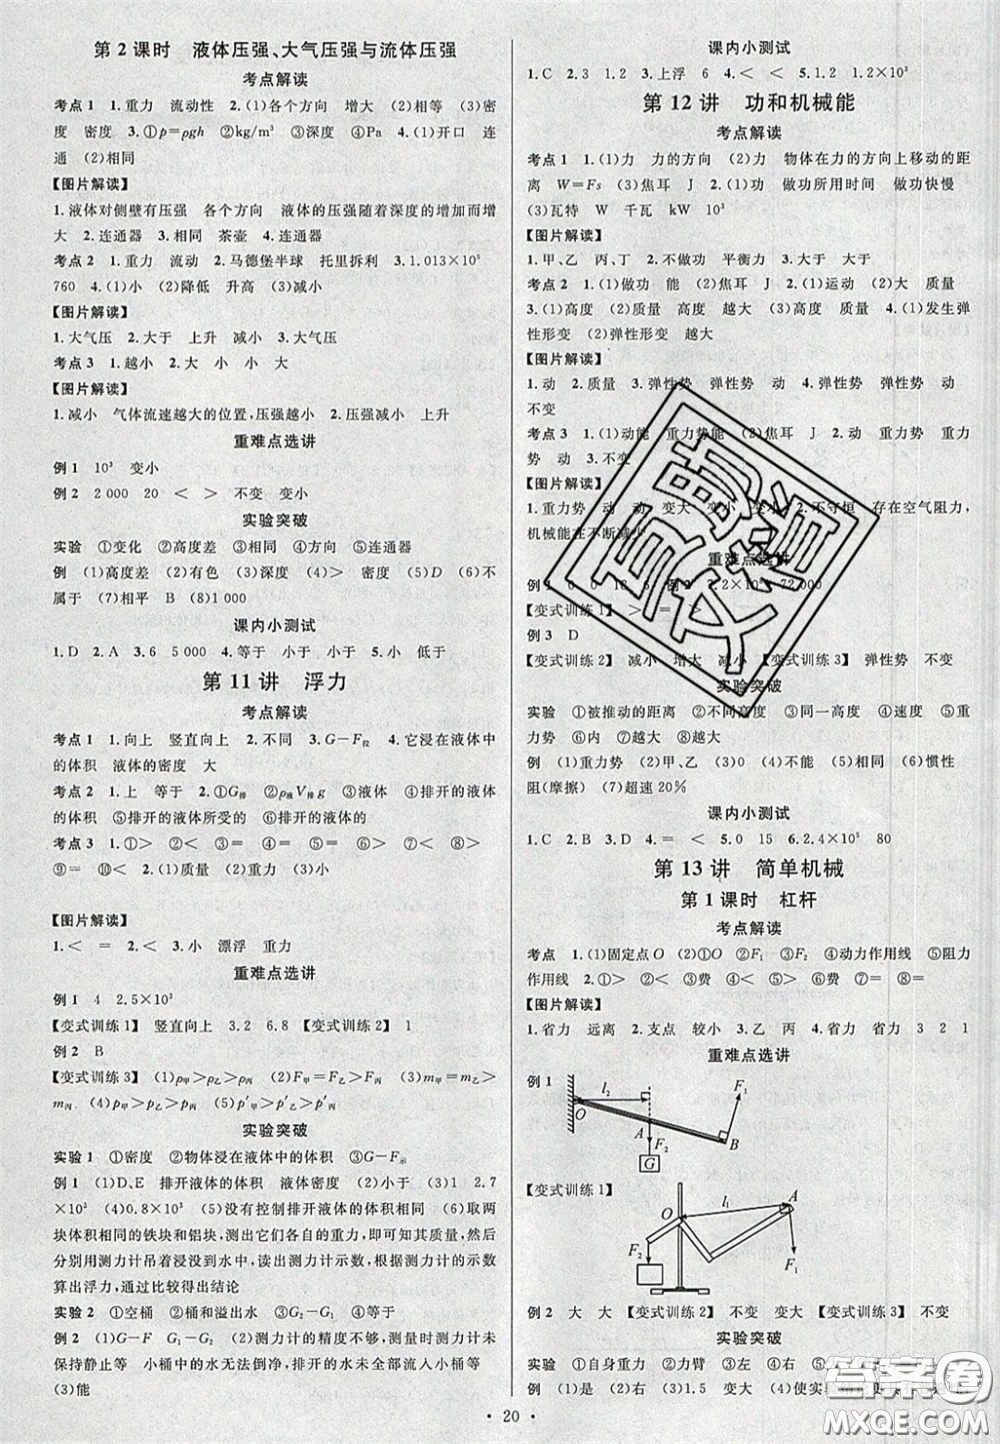 第2课时 液体压强、大气压强与流体压强
考点解读
考点1 1.重力 流动性 2.(1)各个方向 增大 (2)相等 (3)密
度 密度 3.①p=ρgh ②kg/m³ ③深度 ④Pa 4.(1)开口 连
通 (2)相同
【图片解读】
1.液体对侧壁有压强 各个方向 液体的压强随着深度的增加而增
大 2.连通器 3.相同 茶壶 4.连通器
考点2 1.重力 流动 2.马德堡半球 托里拆利 3.1.013×10⁵
760 4.(1)小 (2)降低 升高 (3)减小
【图片解读】
1.大气压 2.大于 上升 减小 3.大气压
考点3 1.越小 2.大 小 小 大
【图片解读】
1.减小 气体流速越大的位置,压强越小 2.压强减小 上升
重难点选讲
例1 10³ 变小
例2 2 000 20 < > 不变 变小
实验突破
实验 ①变化 ②高度差 ③相同 ④方向 ⑤连通器
例 (1)高度差 (2)有色 (3)深度 (4)> 密度 (5)D (6)不
属于 (7)相平 B (8)1 000
课内小测试
1.D 2.A 3.6 5 000 4.等于 小于 小于 5.小 低于
第11讲 浮力
考点解读
考点1 1.向上 竖直向上 2.不同 3.G-F拉 4.它浸在液体中
的体积 液体的密度 大
考点2 1.上 等于 2.①G排 ②ρ液V排g ③液体 ④排开的液体
的体积 ⑤排开的液体所受的 ⑥排开的液体的
考点3 1.①> ②< ③= ④= ⑤> ⑥< ⑦< ⑧>
⑨= ⑩< 2.(1)重力 (2)重力 (3)体积
【图片解读】
1.< = 2.< 3.小 漂浮 重力
重难点选讲
例1 4 2.5×10³
【变式训练1】 竖直向上 3.2 6.8 【变式训练2】 1
例2 B
【变式训练3】 (1)ρ甲>ρ乙>ρ丙 (2)F甲=F乙=F丙 (3)m甲=m乙
=m丙 (4)p甲>p乙>p丙 (5)p′甲>p′乙>p′丙
实验突破
实验1 ①密度 ②物体浸在液体中的体积 ③G-F示
例1 (1)D、E 排开液体的体积 (2)液体密度 (3)1 2.7
×10³ (4)0.8×10³ (5)没有控制排开液体的体积相同 (6)取两
块体积相同的铁块和铝块,即可知两个物体受到的重力,然后分
别使用测力计吊着浸没到水中,读出测力计示数,根据测力计的示数
算出浮力,通过比较得出结论
实验2 ①空桶 ②桶和溢出水 ③G₂-G₁ ④等于
例2 (1)G-F G₁-G₂ (2)测力计的精度不够,测量时测力计未
保持静止等 小桶中的水无法倒净,排开的水未全部流入小桶等
(3)能
课内小测试
1.C 2.3 1.2 3.上浮 6 4.< < 5.1.2 1.2×10³
第12讲 功和机械能
考点解读
考点1 1.(1)力 力的方向 (2)力 物体在力的方向上移动的距
离 W=Fs (3)焦耳 J 2.(1)功 做功所用时间 做功快慢
(3)瓦特 W 千瓦 kW 10³
【图片解读】
1.甲、乙 丙、丁 2.不做功 平衡力 3.大于 大于
考点2 1.(1)做功 能 (2)焦耳 J 2.(1)运动 (2)大 质量
3.(1)高度 (2)质量 高度 越大 (3)高度 质量 4.(1)发生弹
性形变 (2)弹性形变 越大
【图片解读】
1.动 2.质量 3.弹性势 动 4.弹性势 弹性势 动
不变
考点3 1.(1)动能 重力势能 (2)焦耳 J 2.重力势 重力
势 动 3.不变
【图片解读】
1.重力势 动 动 变大 变小 变大 变小 2.不守恒 存在空气阻力,
机械能在不断减少
重难点选讲
例1 7.2×10⁵ 72 000
【变式训练1】 > =
例3 D
【变式训练2】 减小 增大 减小 【变式训练3】 弹性势 不变
实验突破
实验 ①被推动的距离 ②不同高度 ③同一高度 ④速度 ⑤重
力势 ⑥内 ⑦越大 ⑧越大
例 (1)重力势 (2)甲、乙 (3)0 (4)不能 (5)相同 (6)惯性
阻(摩擦) (7)超速20%
课内小测试
1.C 2.B 3.D 4.= < 5.0 15 6.2.4×10⁵ 80
第13讲 简单机械
第1课时 杠杆
考点解读
考点 1.(1)固定点O (2)①O ②F₁ ③F₂ ④动力作用线 ⑤阻力
作用线 2.①> ②< ③费 ④< ⑤> ⑥费 ⑦= ⑧=
【图片解读】
1.省力 远离 2.支点 较小 3.乙 丙 4.省力 省力 3 2 1
重难点选讲
例1
O l₂ A F₂ G B F₁
【变式训练1】
O l₁ A F₂ F₁
例2 大 大 【变式训练2】 不变 变大 【变式训练3】 不变
实验突破
实验 ①自身重力 ②力臂 ③
例 (1)是 (2)右 (3)1 变大 (4)使实
· 20 ·
答案圈
MXQE.COM